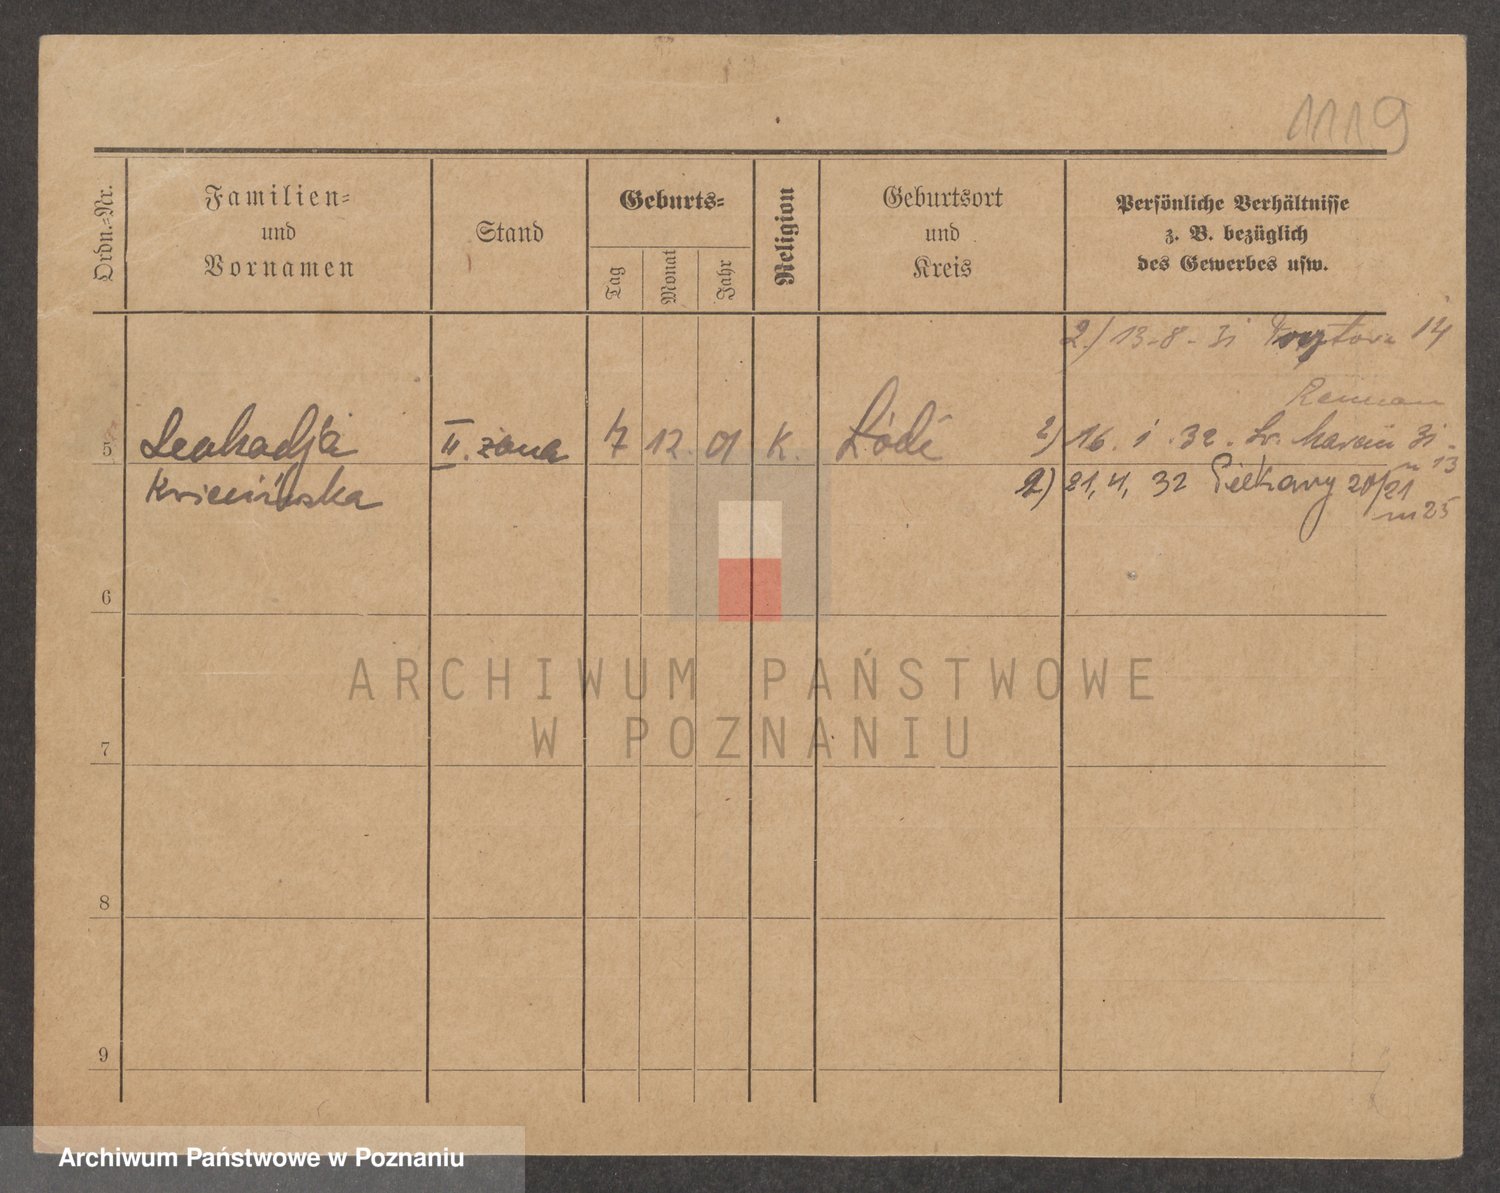 1119
Ordn.=Nr.
Familien=
und
Vornamen
Stand
Geburts=
Tag
Monat
Jahr
Religion
Geburtsort
und
Kreis
Persönliche Verhältnisse
z. B. bezüglich
des Gewerbes usw.
2.) 13-8-31 14
5 Leokadja II. żona 7 12. 01 K. Łódź 2) 16. 1. 32. Św. Marcin 31
m 13
2) 21, 4, 32 Piekary 20/21
m 25
6
ARCHIWUM PAŃSTWOWE
W POZNANIU
7
8
9
Archiwum Państwowe w Poznaniu